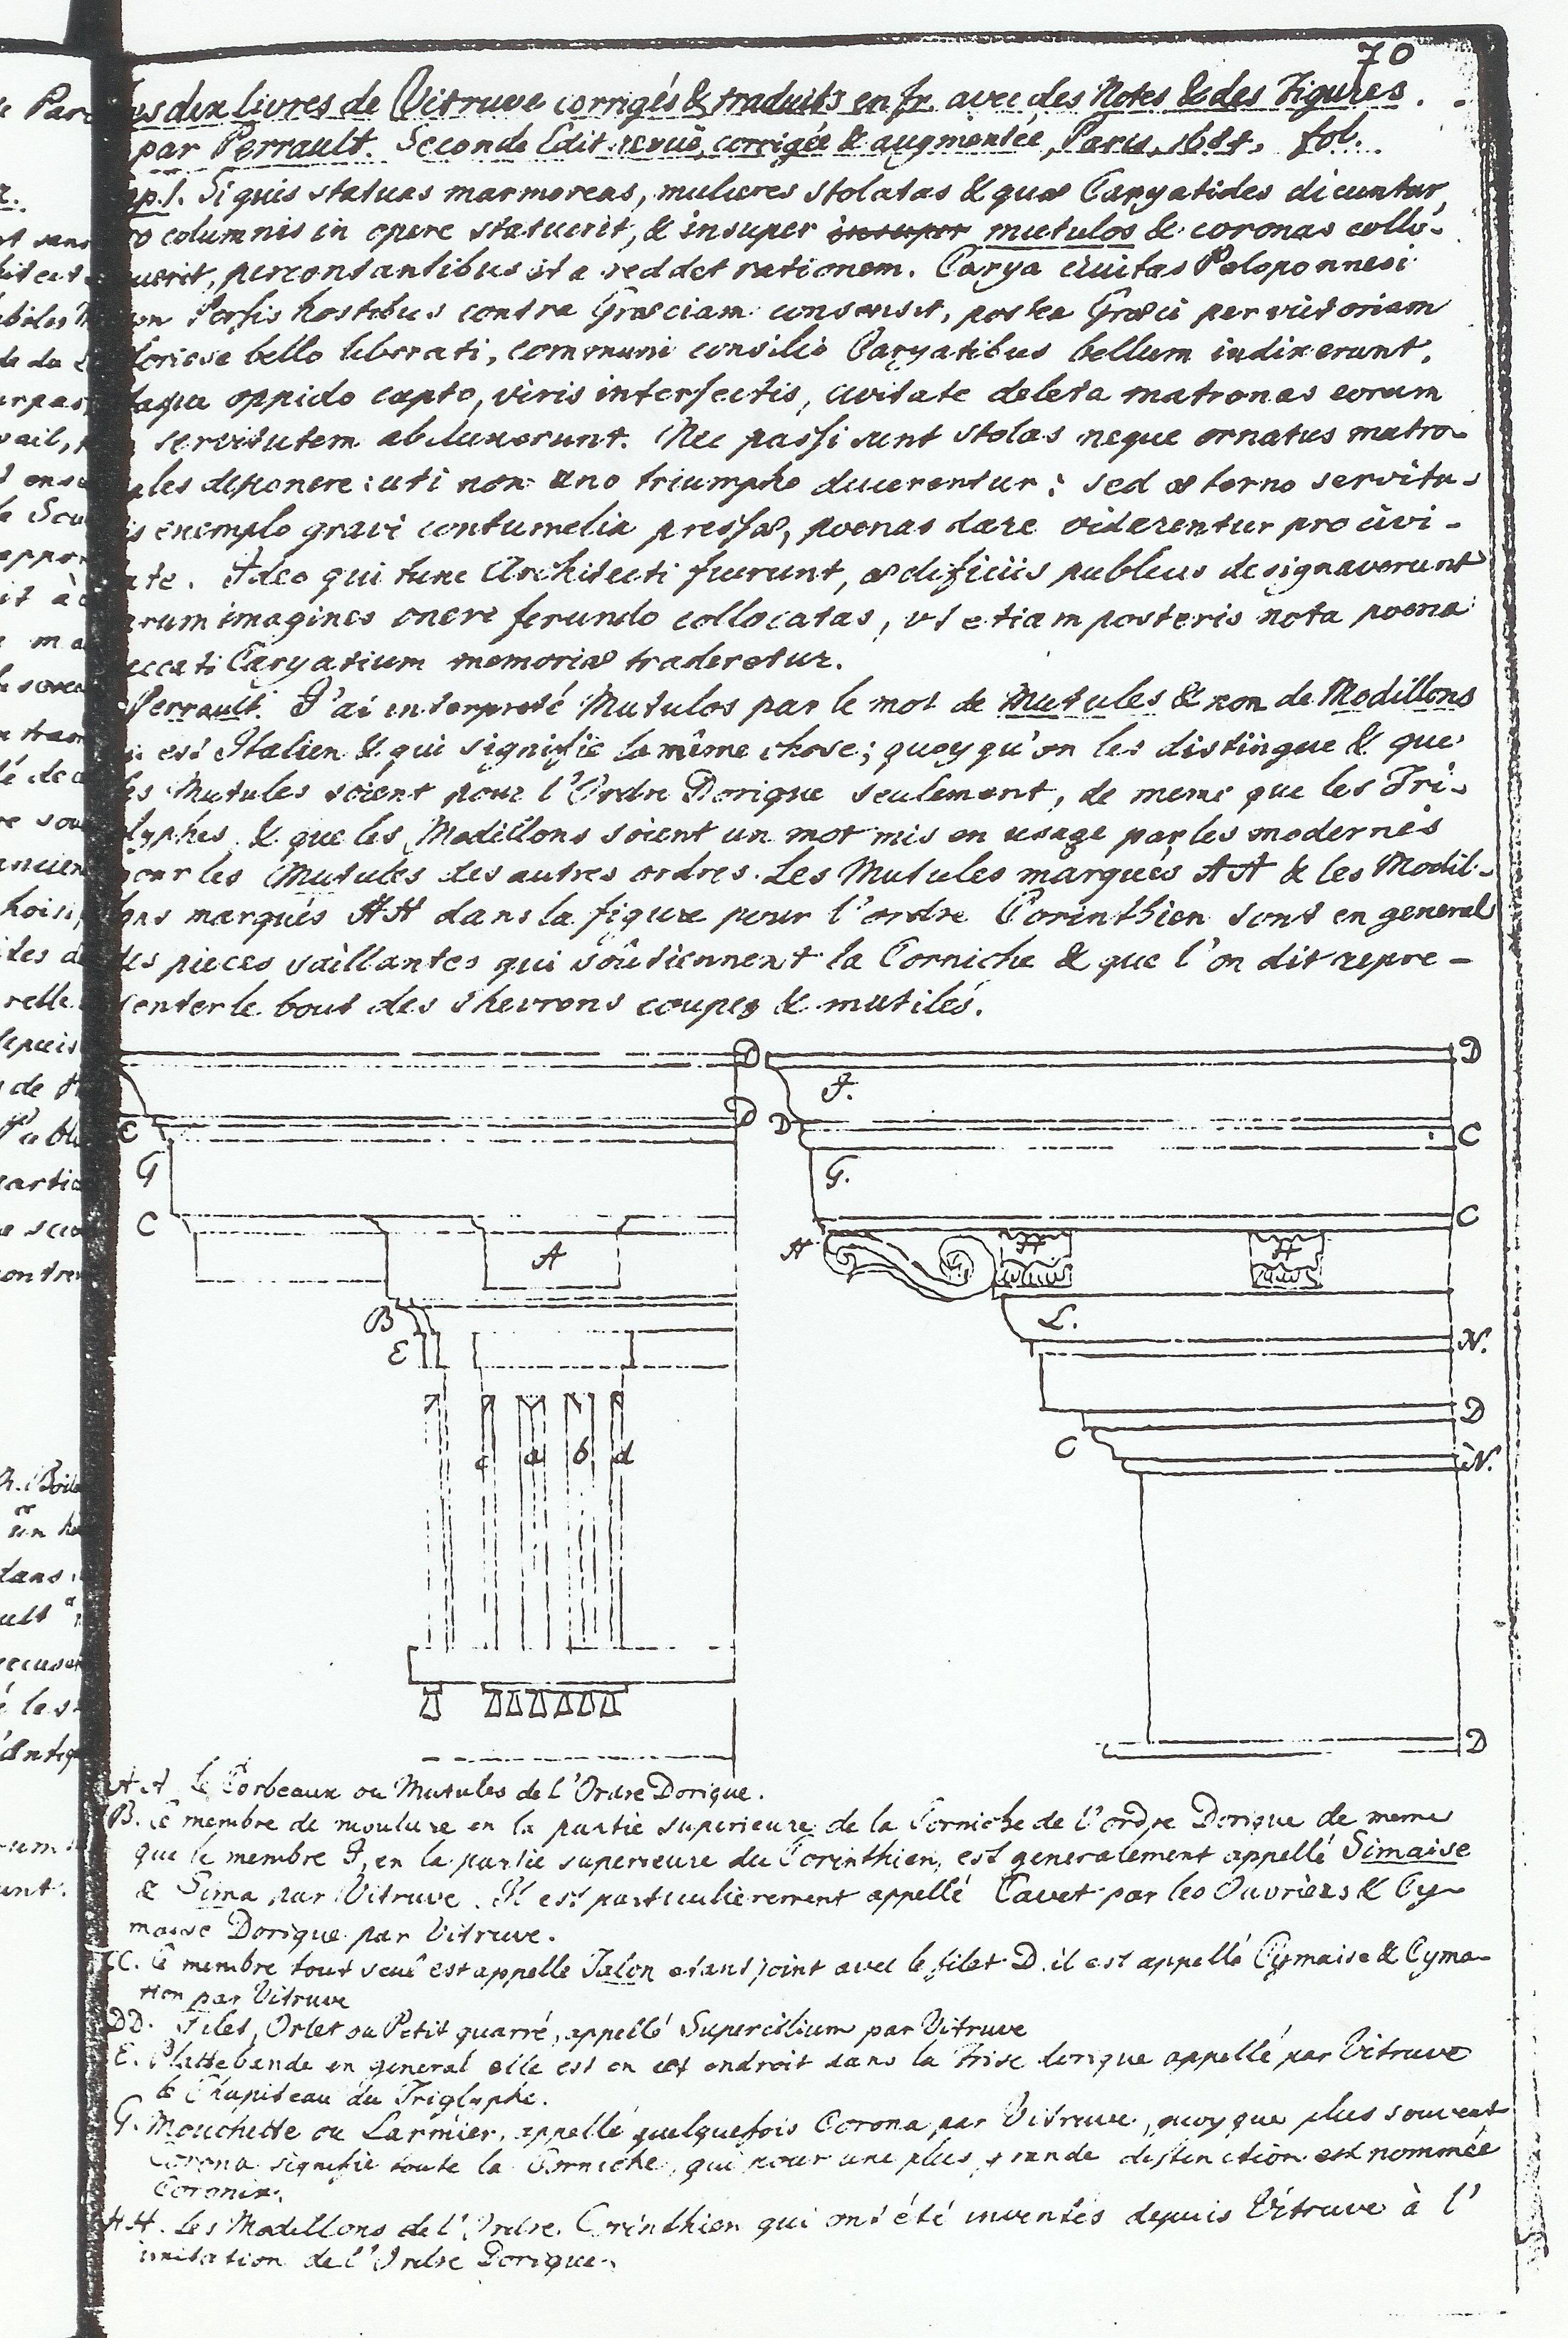 70
es dix livres de Vitruve corrigés & traduits en fr. avec des Notes & des Figures.
par Perrault. Seconde Edit. revuë, corrigée & augmentée, Paris, 1684. fol.
ap. 1. Si quis statuas marmoreas, mulieres stolatas & quæ Caryatides dicuntur,
ro columnis in opere statuerit, & insuper insuper mutulos & coronas collo-
uerit, percontantibus ita reddet rationem. Carya civitas Peloponnesi
on Persis hostibus contra Græciam consensit, postea Græci per victoriam
loriose bello liberati, communi consilio Caryatibus bellum indixerunt.
taque oppido capto, viris interfectis, civitate deleta matronas eorum
n servitutem abduxerunt. Nec passi sunt stolas neque ornatus matro-
ales deponere: uti non uno triumpho ducerentur; sed æterno servitu-
is exemplo gravi contumelia pressæ, poenas dare viderentur pro civi-
ate. Ideo qui tunc Architecti fuerunt, ædificiis publicis designaverunt
arum imagines oneri ferundo collocatas, ut etiam posteris nota poena
eccati Caryatium memoriæ traderetur.
Perrault. J'ai interpreté Mutulos par le mot de Mutules & non de Modillons
ui est Italien & qui signifie la même chose; quoyqu'on les distingue & que
les Mutules soient pour l'Ordre Dorique seulement, de meme que les Tri-
glyphes, & que les Modillons soient un mot mis en usage par les modernes
pour les Mutules des autres ordres. Les Mutules marqués AA & les Modil-
lons marqués HH dans la figure pour l'ordre Corinthien sont en general
des pieces saillantes qui soûtiennent la Corniche & que l'on dit repre-
senter le bout des chevrons coupez & mutilés.
D D
I.
D D
C C
G G.
C C
A H H H
B L.
E N.
D
c a b d C N.
D
AA Les Corbeaux ou Mutules de l'Ordre Dorique.
B. Ce membre de moulure en la partie superieure de la Corniche de l'ordre Dorique de meme
que le membre I, en la partie superieure du Corinthien, est generalement appellé Simaise
& Sima par Vitruve. Il est particulierement appellé Cavet par les Ouvriers & Cy-
maise Dorique par Vitruve.
CC. Ce membre tout seul est appelle Talon etant joint avec le filet D. il est appellé Cymaise & Cyma-
tion par Vitruve
DD. Filet, Orlet ou Petit quarré, appellé Supercilium par Vitruve
E. Plattebande en general elle est en cet endroit dans la Frise dorique appellé par Vitruve
le Chapiteau du Triglyphe.
G. Mouchette ou Larmier, appellé quelquefois Corona par Vitruve, quoyque plus souvent
Corona signifie toute la Corniche, qui pour une plus grande distinction est nommée
Coronix.
HH. Les Modillons de l'Ordre Corinthien qui ont été inventés depuis Vitruve à l'
imitation de l'Ordre Dorique.